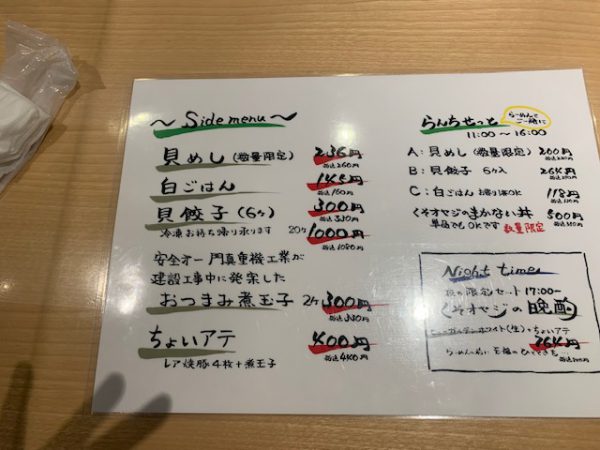 〜 Side menu 〜
貝めし (数量限定) 236円
税込260円
白ごはん
税込160円
貝餃子 (6ヶ) 300円
税込330円
冷凍お持ち帰り承ります 20ヶ 1000円
税込1080円
安全オー 門真重機工業が
建設工事中に発案した
おつまみ煮玉子 2ヶ 300円
税込330円
ちょいアテ 400円
税込440円
レア焼豚4枚+煮玉子
らんちせっと らーめんとご一緒に
11:00 〜 16:00
A: 貝めし (数量限定) 200円
税込220円
B: 貝餃子 6ヶ入 264円
C: 白ごはん 118円
くそオヤジのまかない丼 500円
税込550円
単品でもOKです 数量限定
Night time
夜の限定セット 17:00〜
くそオヤジの晩酌
(生)+ちょいアテ